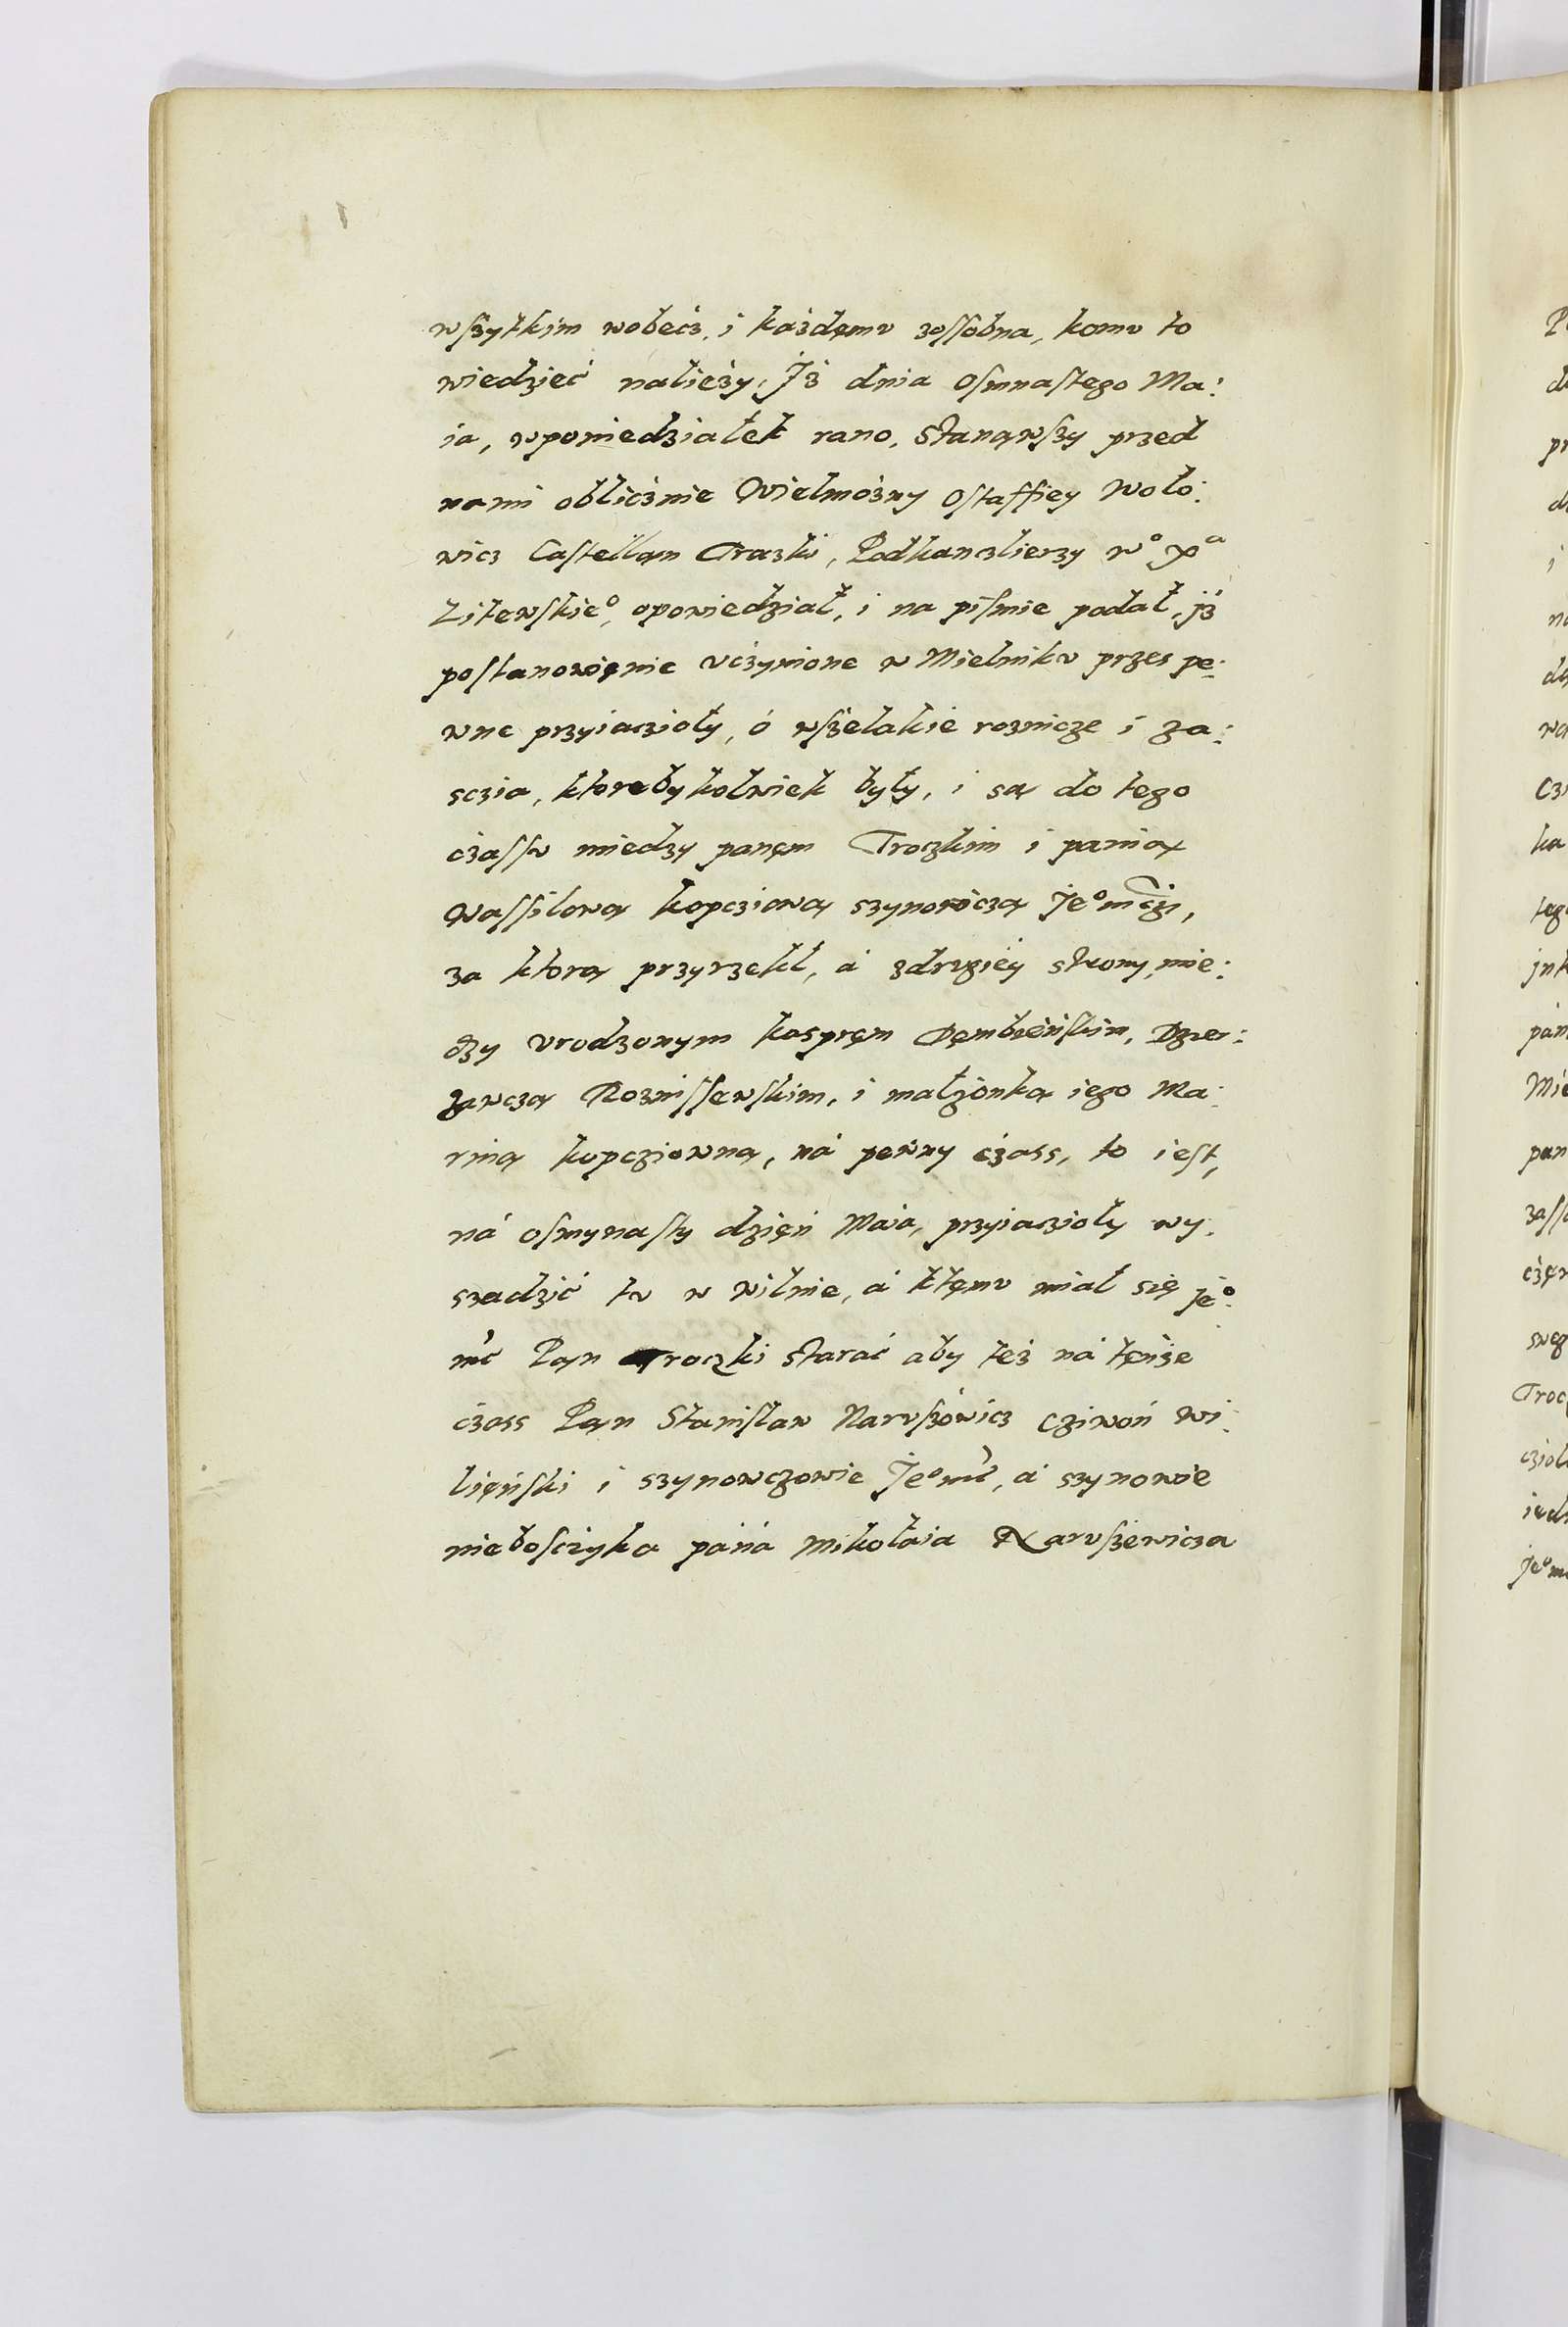 wſzytkim wobecż, i każdęmv zoſſobna, komv to
wiedzieć nalieży, Jż dnia Oſmnaſtego Ma:
ia, wponiedziałek rano, Stanąwſzy przed
nami obliċznie Wielmożny Oſtaffiey Woło:
wicz Caſtelląn Traczki, Podkanczlierzy wº xᵃ
Litewſkieº, opowiedział, i na piſmie podał, jż
poſtanowięnie vċzynione w Mielnikv przes pe:
wne przyiaczioły, ó wſżelakie roznicze i za:
sczia, ktorebykolwiek były, i są do tego
ċzaſſv miedzy panęm Troczkim i panią
Waſſilową kopcziową szynowiczą Jeºmċzi,
za ktorą przyrzekł, á zdrvgiéy strony, mie:
dzy vrodzonym kaspręm Dęmbieńſkim, Dzer:
żawczą Rozniſſewſkim, i małżonką iego Ma:
riną kopcziowną, ná pewny ċzass, to ieſt,
ná oſmynaſty dzięń Maia, przyiaczioły wy:
szadzić tv w wilnie, á ktęmv miał się Jeº:
mċ Pąn Troczki Starać aby też ná tęnże
ċzass Pąn Staniſław Narvſzówicz Cziwoń Wi:
lięńſki i szynowczowie Jeºmċ, á szynowie
nieboſċzyka páná Mikołáia Narvſzewicza